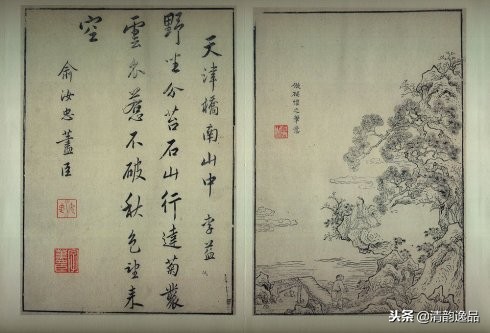 天津橋南山中 李益
野坐分苔石山行遶菊叢
雲衣惹不破秋色望来
空
俞汝忠藎臣
之筆意
头条 @清韵逸品